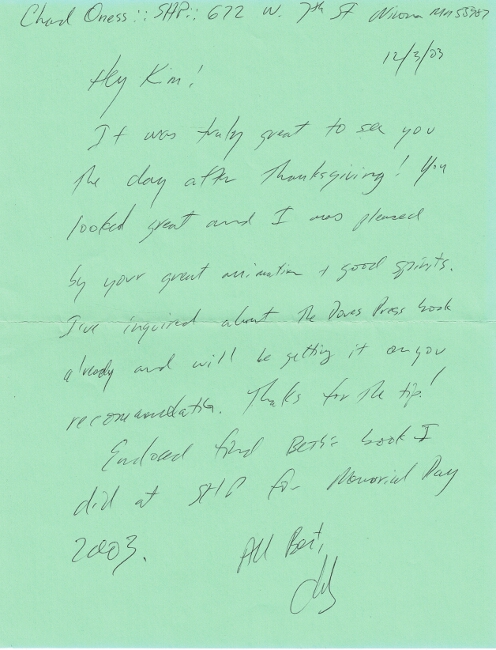 Chad Oness :: SHP :: 672 W. 7th St Winona MN 55987
12/3/03
Hey Kim!
It was truly great to see you
the day after Thanksgiving! You
looked great and I was pleased
by your great animation + good spirits.
I've inquired about the Doves Press book
already and will be getting it on you
recommendation. Thanks for the tip!
Enclosed find book I
did at SHP for Memorial Day
2003.
All Best,